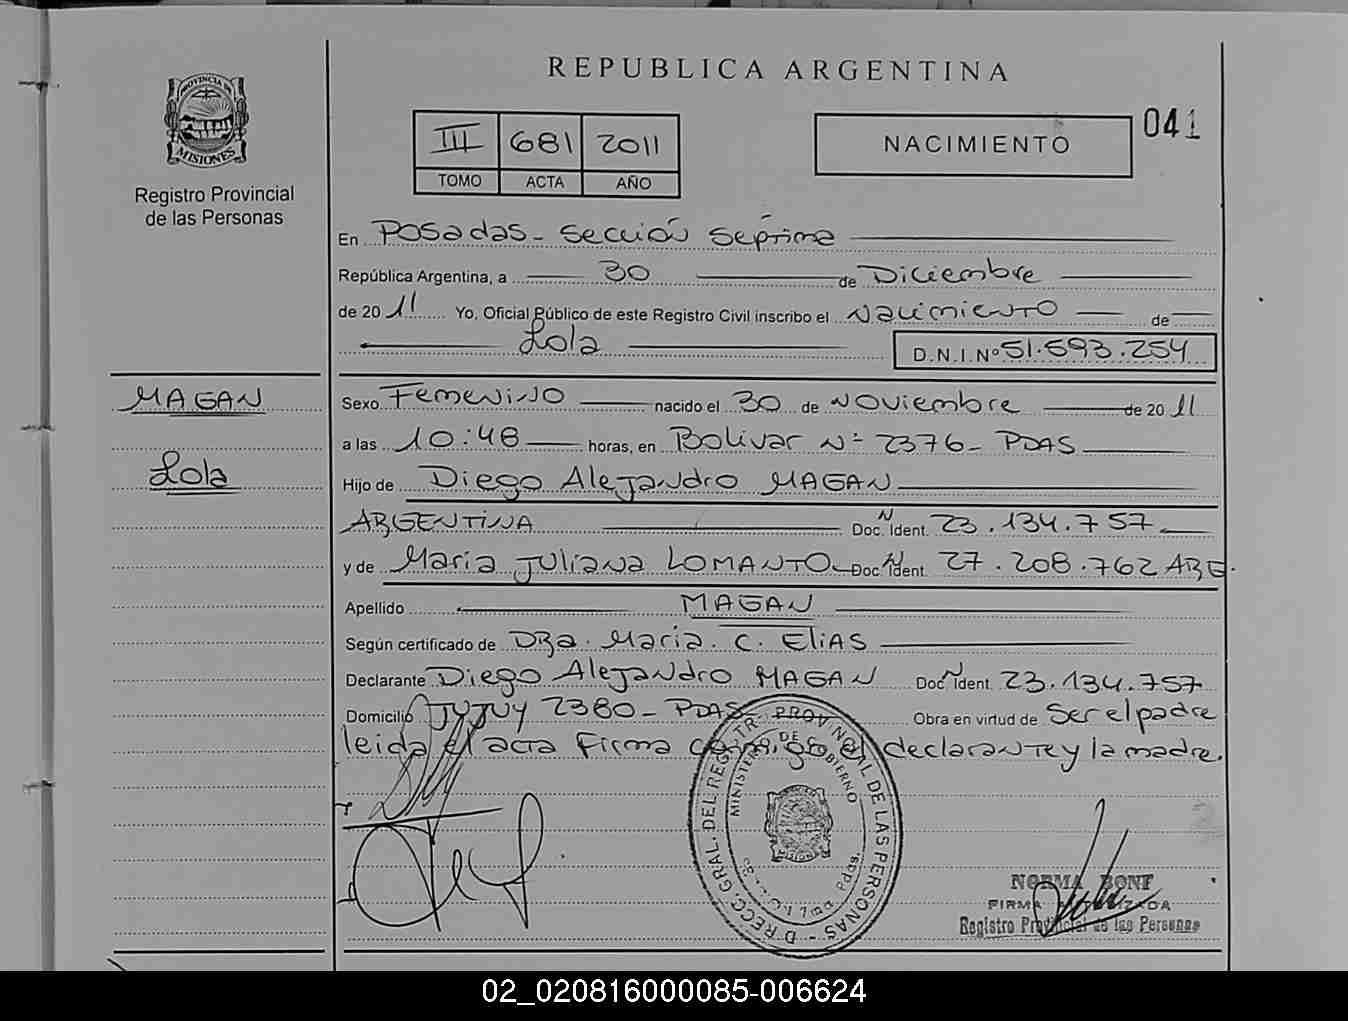 REPUBLICA ARGENTINA
PROVINCIA DE
MISIONES
Registro Provincial
de las Personas
III 681 2011
TOMO ACTA AÑO
NACIMIENTO
041
En Posadas - Sección Séptima
República Argentina, a 30 de Diciembre
de 2011 Yo, Oficial Público de este Registro Civil inscribo el Nacimiento de
Lola D.N.I.Nº 51.593.254
MAGAN
Lola
Sexo Femenino nacido el 30 de Noviembre de 2011
a las 10:48 horas, en Bolivar Nº 2376 - PDAS
Hijo de Diego Alejandro MAGAN
ARGENTINA Doc. Ident. N 23.134.757
y de Maria Juliana LOMANTO Doc. Ident. N 27.208.762 ARG.
Apellido MAGAN
Según certificado de DRa. Maria. C. ELIAS
Declarante Diego Alejandro MAGAN Doc. Ident. N 23.134.757
Domicilio JUJUY 2380 - PDAS Obra en virtud de Ser el padre
leida el acta Firma conmigo el declarante y la madre.
GRAL. DEL REG. PROVINCIAL DE LAS PERSONAS
MINISTERIO DE GOBIERNO
MISIONES
7ma Pdas.
NORMA BONF
FIRMA
Registro Provincial de las Personas
02_020816000085-006624